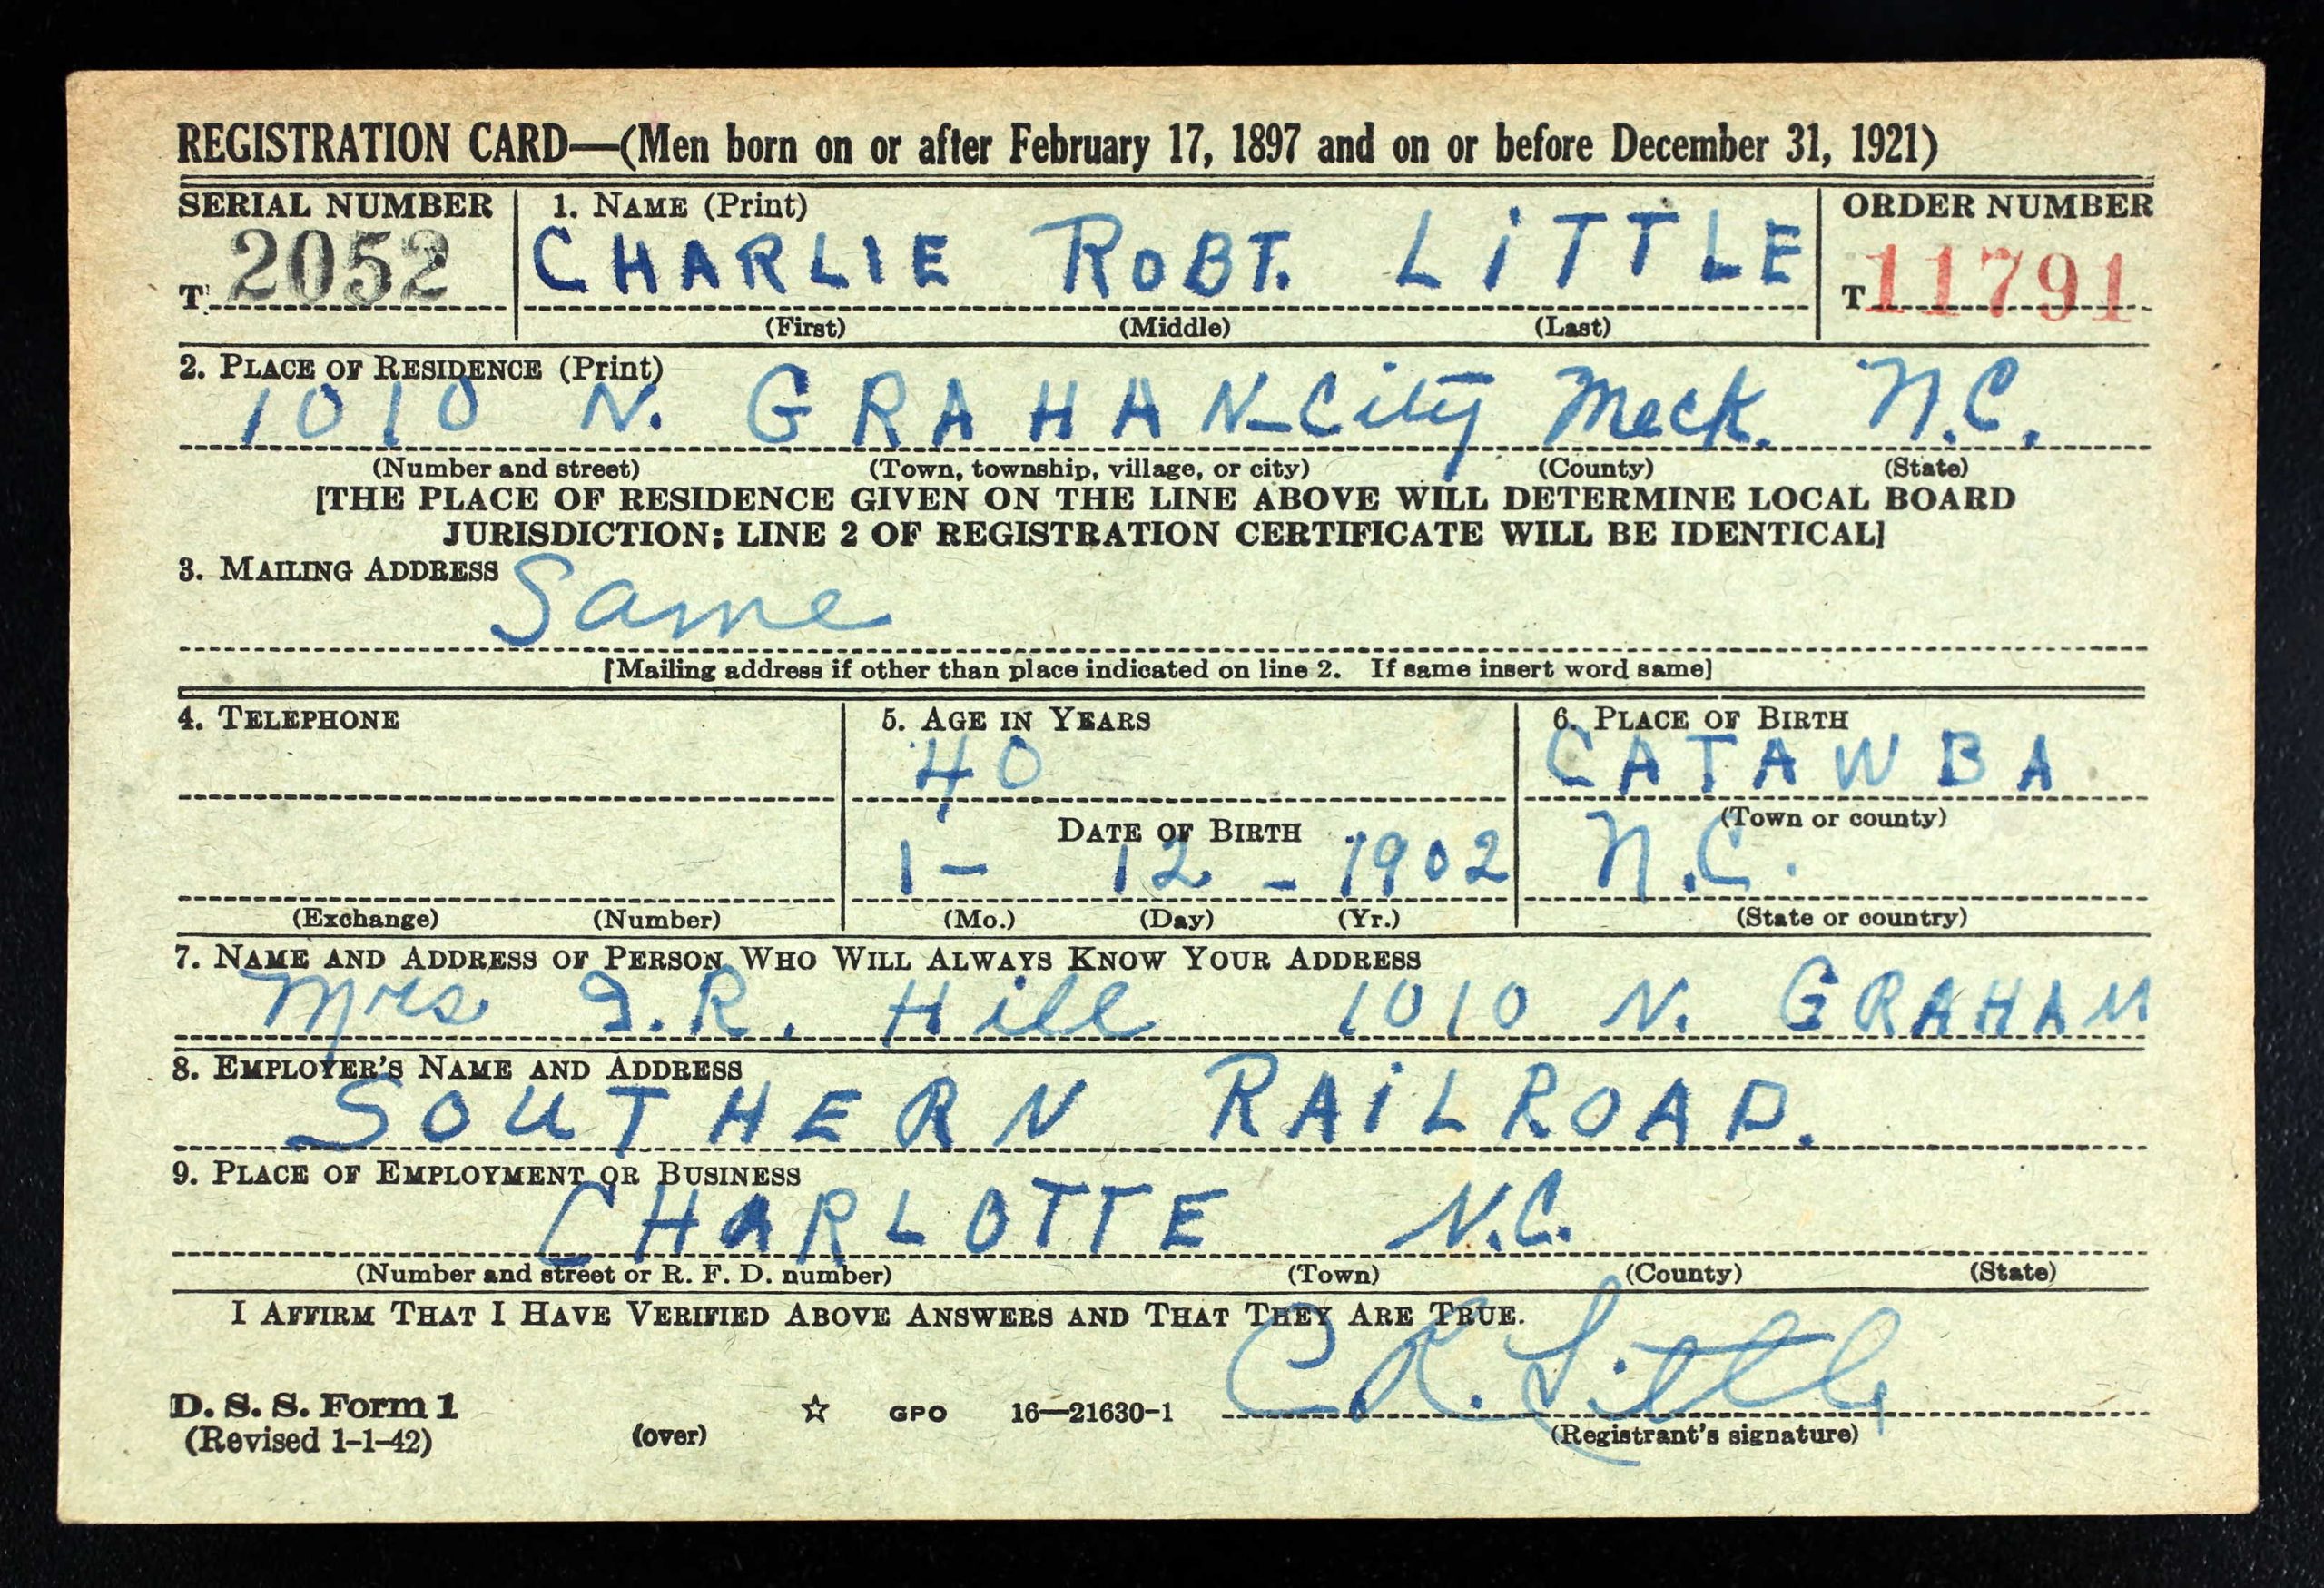 REGISTRATION CARD—(Men born on or after February 17, 1897 and on or before December 31, 1921)
SERIAL NUMBER 1. NAME (Print) ORDER NUMBER
T 2052 CHARLIE ROBT. LITTLE T 11791
(First) (Middle) (Last)
2. PLACE OF RESIDENCE (Print)
1010 N. GRAHAN-City Meck. N.C.
(Number and street) (Town, township, village, or city) (County) (State)
[THE PLACE OF RESIDENCE GIVEN ON THE LINE ABOVE WILL DETERMINE LOCAL BOARD
JURISDICTION; LINE 2 OF REGISTRATION CERTIFICATE WILL BE IDENTICAL]
3. MAILING ADDRESS
Same
[Mailing address if other than place indicated on line 2. If same insert word same]
4. TELEPHONE 5. AGE IN YEARS 6. PLACE OF BIRTH
40 CATAWBA
DATE OF BIRTH (Town or county)
1- 12 - 1902 N.C.
(Exchange) (Number) (Mo.) (Day) (Yr.) (State or country)
7. NAME AND ADDRESS OF PERSON WHO WILL ALWAYS KNOW YOUR ADDRESS
Mrs I.R. Hill 1010 N. GRAHAM
8. EMPLOYER'S NAME AND ADDRESS
SOUTHERN RAILROAD.
9. PLACE OF EMPLOYMENT OR BUSINESS
CHARLOTTE N.C.
(Number and street or R. F. D. number) (Town) (County) (State)
I AFFIRM THAT I HAVE VERIFIED ABOVE ANSWERS AND THAT THEY ARE TRUE.
C.R. Little
D. S. S. Form 1
(Revised 1-1-42) (over) ☆ GPO 16—21630-1 (Registrant's signature)